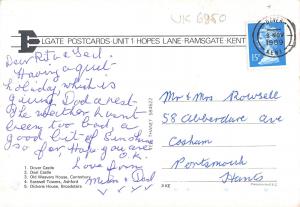 UK 6950
ELGATE POSTCARDS · UNIT 1 HOPES LANE · RAMSGATE · KENT
Dear Rita & Gail.
Having a quiet
holiday which is
giving Dad a rest.
The weather hasn't
been too bad, a
good bit of Sunshine
so far, Hope you are
O.K.
Love from
Mum & Dad
Mr & Mrs Rowsell
58 Abberdare ave
Cosham
Portsmouth
Hants
1 Dover Castle
2 Deal Castle
3 Old Weavers House, Canterbury
4 Eastwell Towers, Ashford
5 Dickens House, Broadstairs
THANET
DOVER
NOV
KENT
15